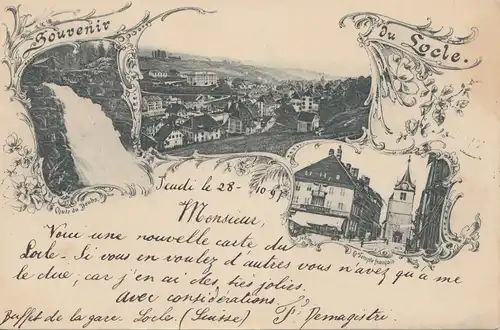 Souvenir
Du Locle.
Chute du Doubs
Le Temple français
Jeudi le 28 - 10 97
Monsieur,
Voici une nouvelle carte du
Locle - Si vous en voulez d'autres vous n'avez qu'a me
le dire, car j'en ai des très jolies.
Avec considérations.
Buffet de la gare Locle (Suisse) F. Demagistri